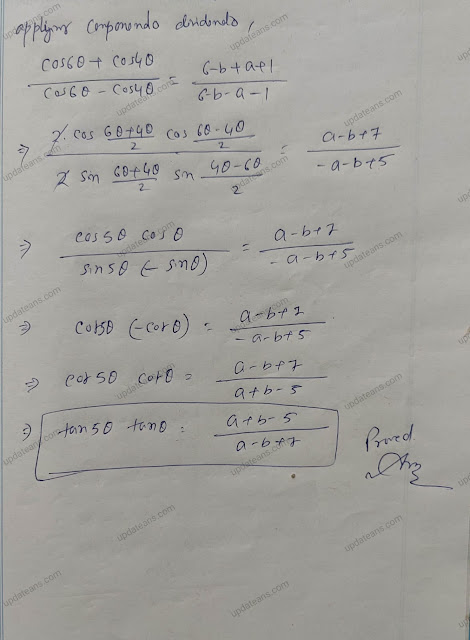 applying componendo dividendo,
cos6θ + cos4θ / cos6θ - cos4θ = 6-b+a+1 / 6-b-a-1
⇒ 2 cos 6θ+4θ/2 cos 6θ-4θ/2 / 2 sin 6θ+4θ/2 sin 4θ-6θ/2 = a-b+7 / -a-b+5
⇒ cos5θ cosθ / sin5θ (-sinθ) = a-b+7 / -a-b+5
⇒ cot5θ (-cotθ) = a-b+7 / -a-b+5
⇒ cot5θ cotθ = a-b+7 / a+b-5
⇒ tan5θ tanθ = a+b-5 / a-b+7
Proved
updateans.com